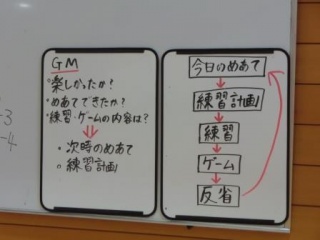 -3
-4
GM
・楽しかったか?
・めあてできたか?
・練習・ゲームの内容は?
⇓
・次時のめあて
・練習計画
今日のめあて
↓
練習計画
↓
練習
↓
ゲーム
↓
反省